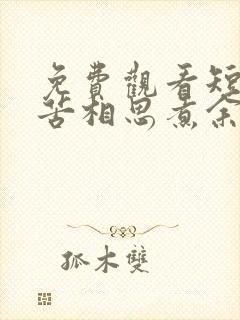 免費觀看短
苦相思煮余
孤木雙